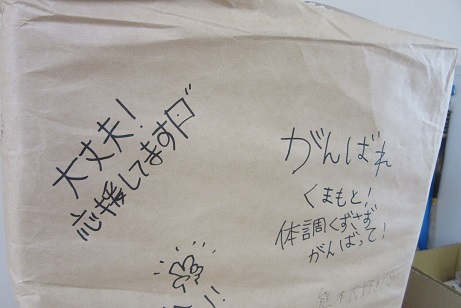 大丈夫！
応援してます
がんばれ
くまもと！
体調くずさず
がんばって！